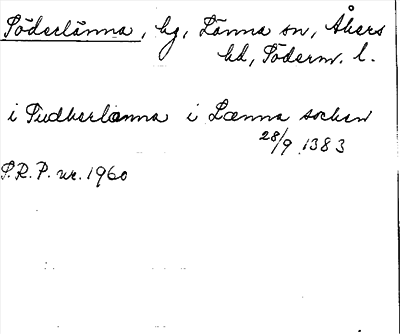 Söderlänna, by, Länna sn, Åkers
hd, Söderm. l.
i Sudherlænna i Lænna sochen
28/9 1383
S.R.P. nr. 1960